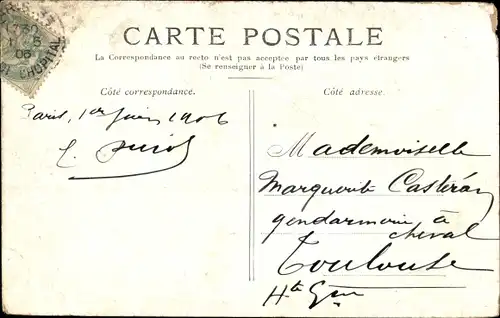 CARTE POSTALE
La Correspondance au recto n'est pas acceptée par tous les pays étrangers
(Se renseigner à la Poste)
Côté correspondance.
Côté adresse.
Paris, 1er Juin 1906
Mademoiselle
Marguerite Castéran
gendarmerie à
cheval
Toulouse
Hte Gne